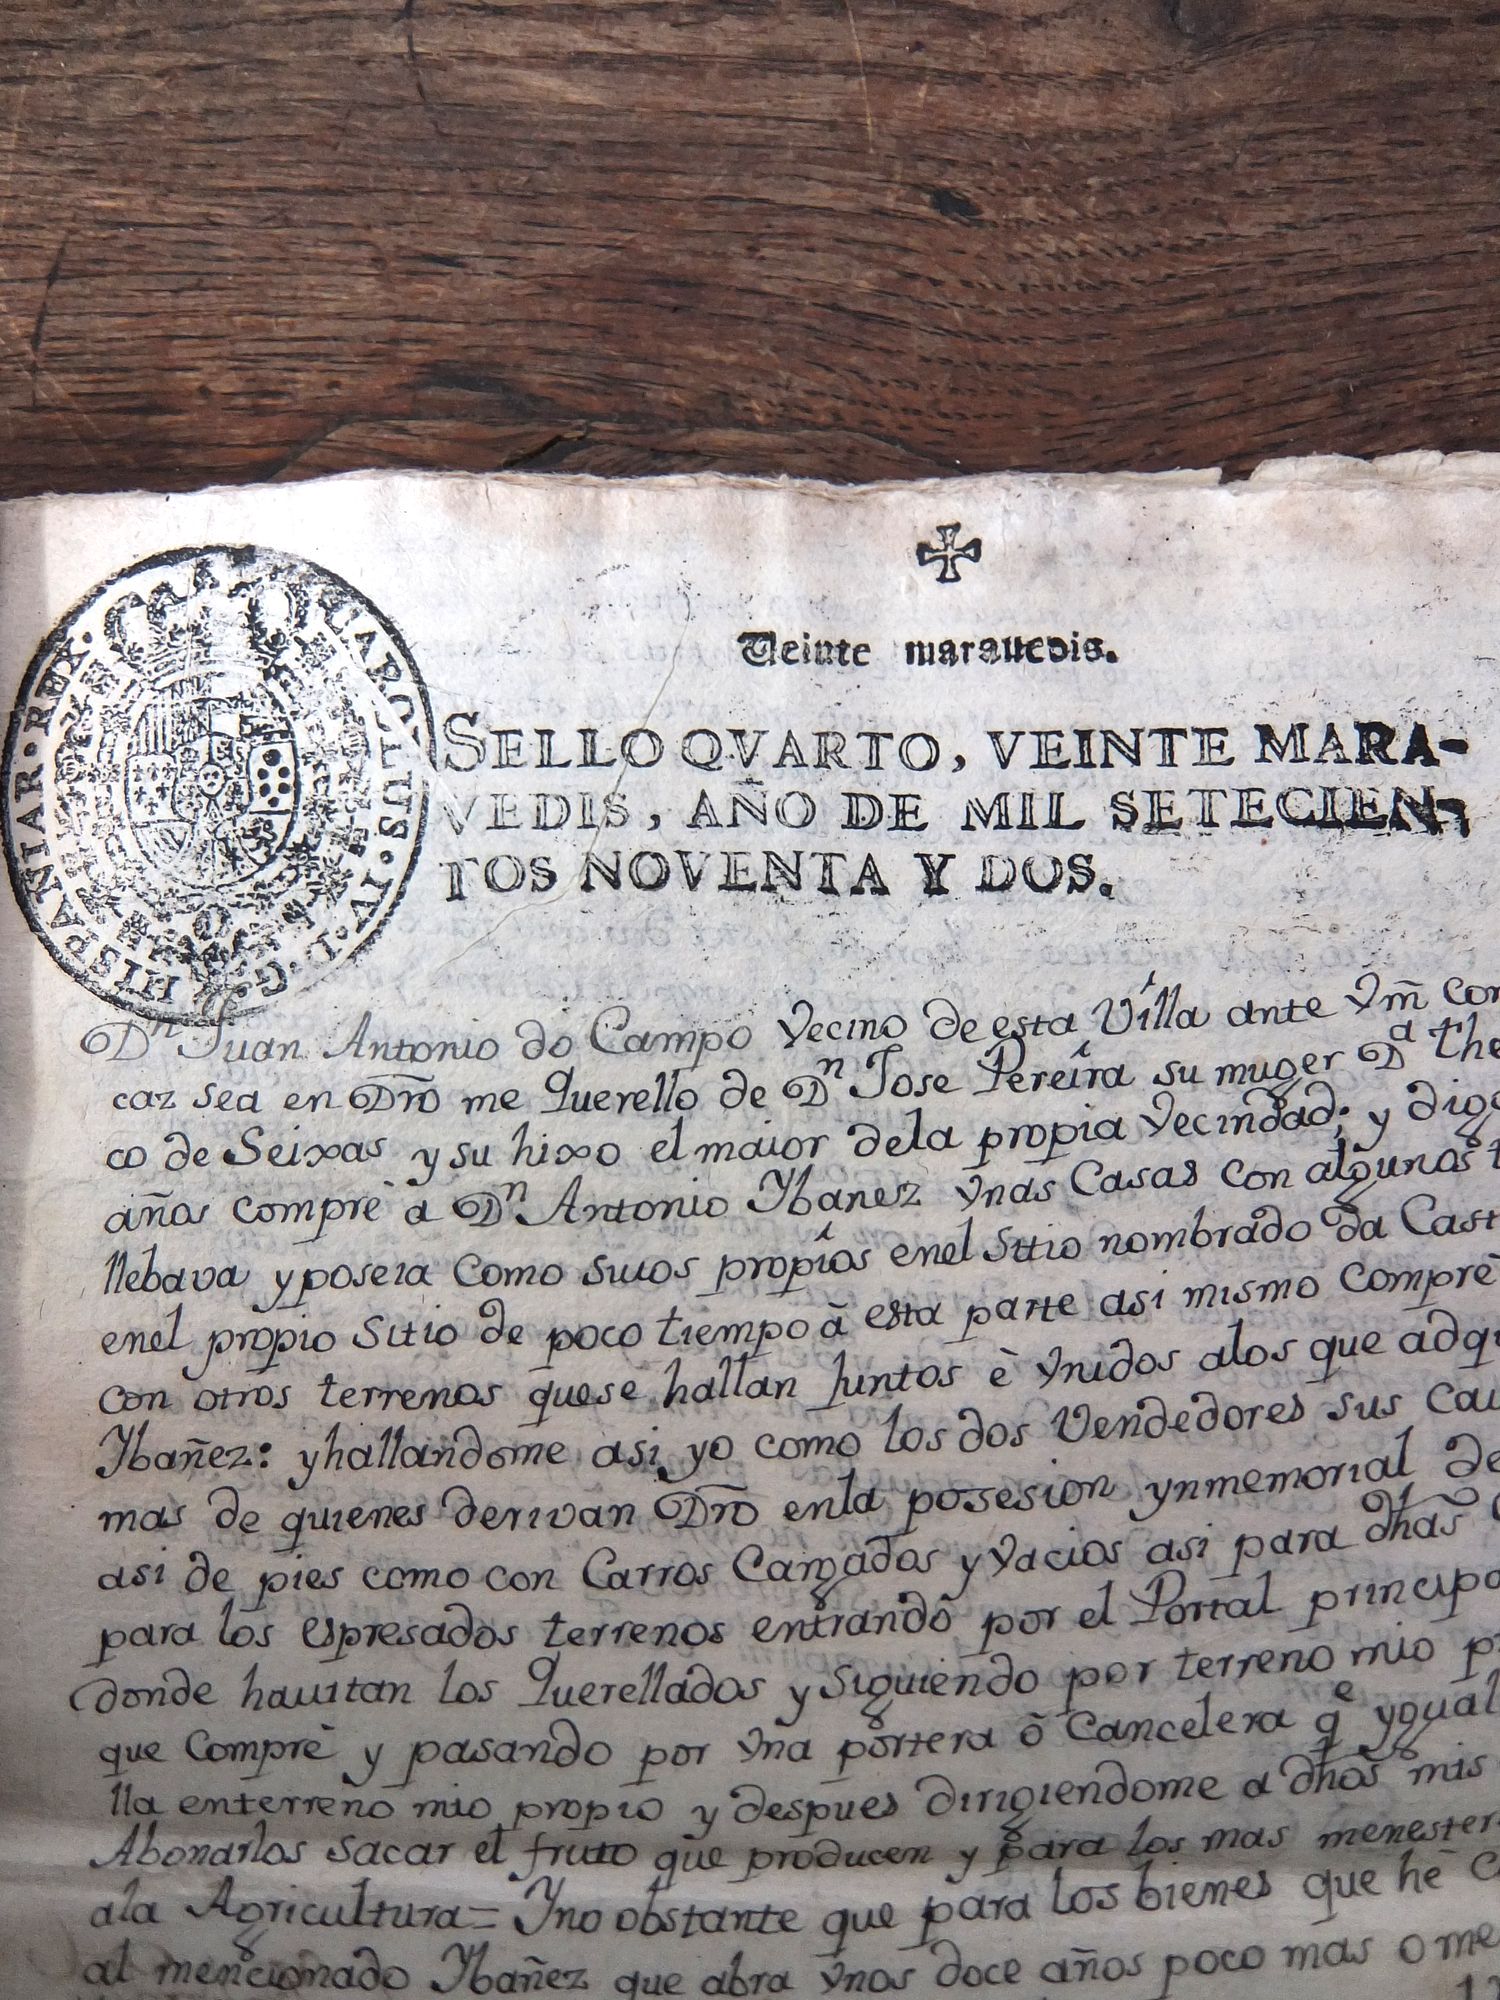 CAROLUS · IV · D · G · HISPANIAR · REX ·
Veinte marauedis.
SELLO QVARTO, VEINTE MARA-
VEDIS, AÑO DE MIL SETECIEN-
TOS NOVENTA Y DOS.
Dn Juan Antonio do Campo Vecino de esta Villa ante Vm̃ con
caz sea en Dr̃o me Querello de Dn Jose Pereira su muger Da The
co de Seixas y su hixo el maior dela propia Vecindad; y digo
años comprè à Dn Antonio Ybanez Vnas Casas con algunos t
llebava y poseia como suios propios enel Sitio nombrado da Cast
enel propio Sitio de poco tiempo â esta parte asi mismo Comprè
con otros terrenos quese hallan Juntos è Vnidos alos que adqu
Ybañez: yhallandome asi yo como los dos Vendedores sus Cau
mas de quienes derivan Dr̃o enla posesion ynmemorial de
asi de pies como con Carros Cargados y Vacios asi para dhãs
para los espresados terrenos entrando por el Portal principa
donde hauitan los Querellados y Siguiendo por terreno mio p
que Comprè y pasando por Vna portera ô Cancelera qe ygual
lla enterreno mio propio y despues dirigiendome a dhõs mis
Abonarlos sacar el fruto que producen y para los mas menester
ala Agricultura= Yno obstante que para los bienes que hê C
al mencionado Ybañez que abra Vnos doce años poco mas o me